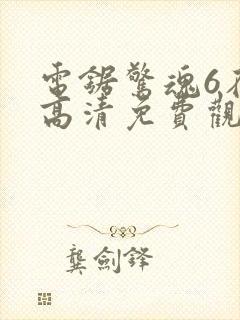 電鋸驚魂6在
高清免費觀
龔劍鋒